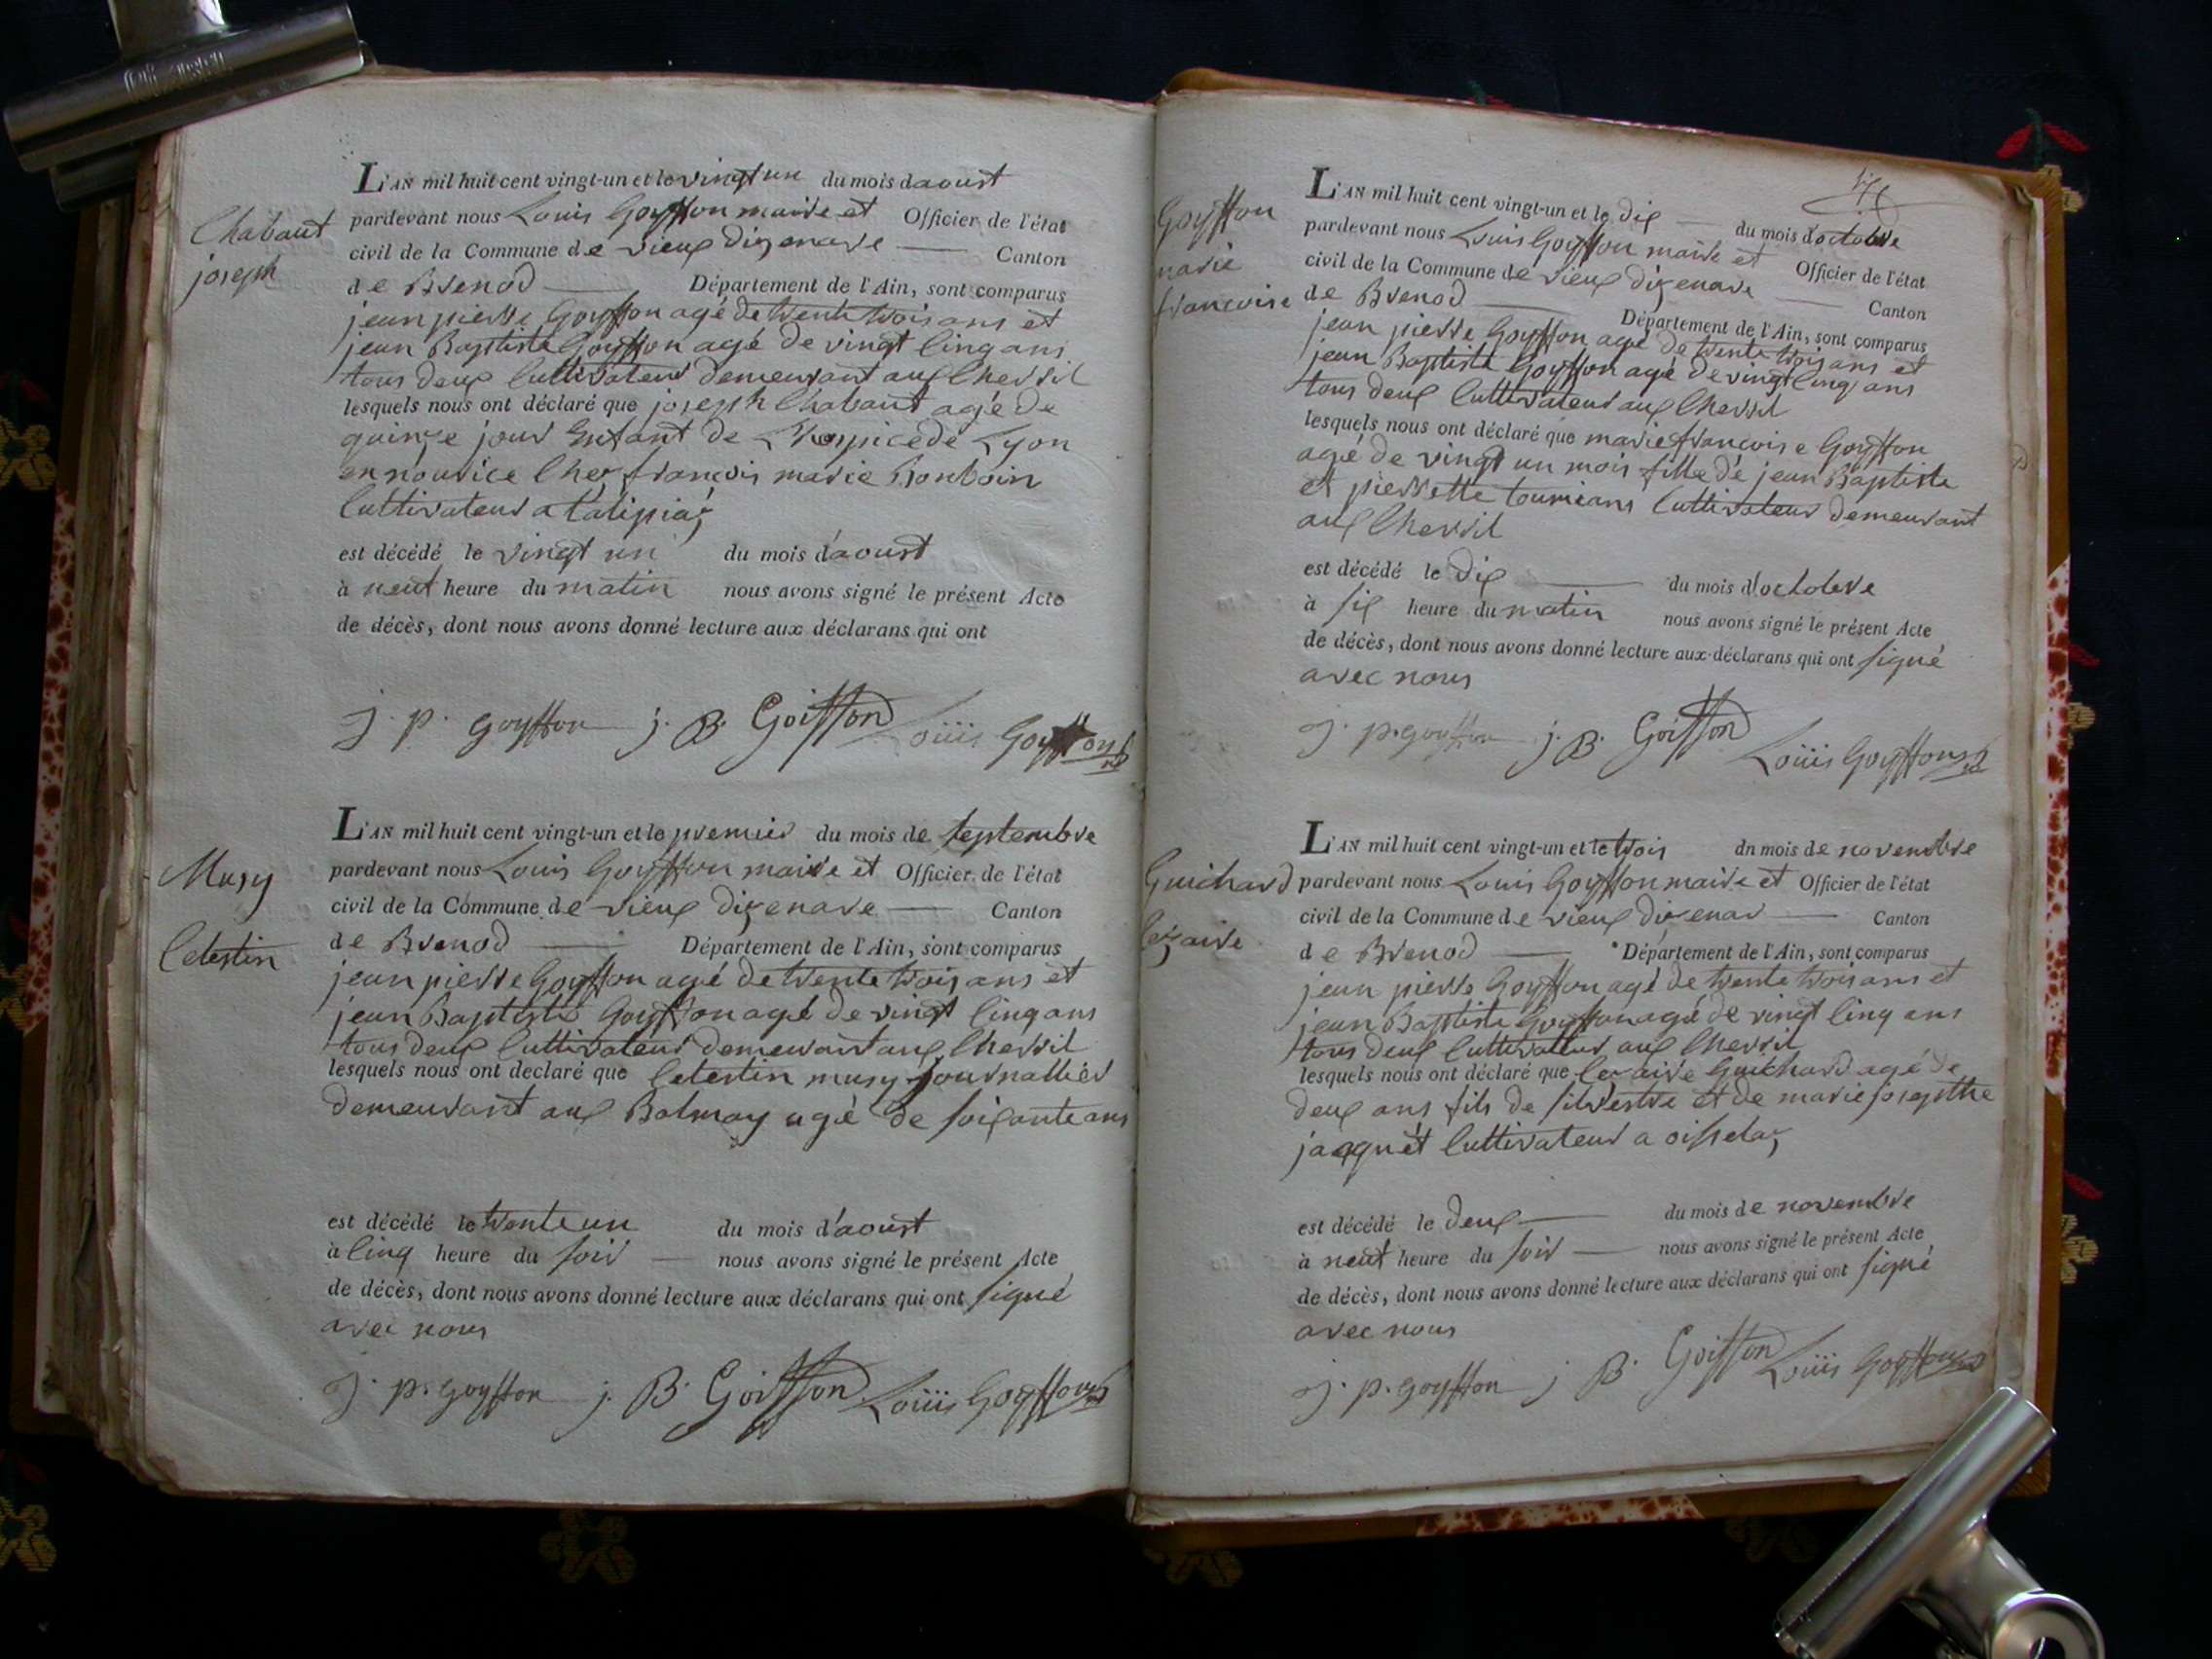 Chabaut
joseph
L'AN mil huit cent vingt-un et le vingt un du mois daoust
pardevant nous Louis Goyffon maire et Officier de l'état
civil de la Commune de vieux dizenave Canton
de Brenod Département de l'Ain, sont comparus
jean pierre Goyffon agé de trente trois ans et
jean Baptiste Goyffon agé de vingt cinq ans
tous deux Cultivateur demeurant aux Chevril
lesquels nous ont déclaré que joseph Chabaut agé de
quinze jour Enfant de L'hospice de Lyon
en nourice Chez francois marie Bonboin
Cultivateur a talipiat
est décédé le vingt un du mois d'aoust
à neuf heure du matin nous avons signé le présent Acte
de décès, dont nous avons donné lecture aux déclarans qui ont
j. p. goyffon j. B. Goiffon Loüis Goyffon
Musy
Celestin
L'AN mil huit cent vingt-un et le premier du mois de septembre
pardevant nous Louis Goyffon maire et Officier de l'état
civil de la Commune de vieux dizenave Canton
de Brenod Département de l'Ain, sont comparus
jean pierre Goyffon agé de trente trois ans et
jean Baptiste Goyffon agé de vingt cinq ans
tous deux Cultivateur demeurant aux Chevril
lesquels nous ont declaré que Celestin musy journallier
demeurant aux Balmay agé de soixante ans
est décédé le trente un du mois d'aoust
à cinq heure du soir nous avons signé le présent Acte
de décès, dont nous avons donné lecture aux déclarans qui ont signé
avec nous
j. p. goyffon j. B. Goiffon Loüis Goyffon
Goyffon
marie
francoise
L'AN mil huit cent vingt-un et le dix du mois doctobre
pardevant nous Louis Goyffon maire et Officier de l'état
civil de la Commune de vieux dizenave Canton
de Brenod Département de l'Ain, sont comparus
jean pierre Goyffon agé de trente trois ans et
jean Baptiste Goyffon agé de vingt cinq ans
tous deux Cultivateur aux Chevril
lesquels nous ont déclaré que marie francoise Goyffon
agé de vingt un mois fille de jean Baptiste
et pierrette tournians Cultivateur demeurant
aux Chevril
est décédé le dix du mois d'octobre
à six heure du matin nous avons signé le présent Acte
de décès, dont nous avons donné lecture aux déclarans qui ont signé
avec nous
j. p. goyffon j. B. Goiffon Loüis Goyffon
Guichard
Cezaire
L'AN mil huit cent vingt-un et le trois du mois de novembre
pardevant nous Louis Goyffon maire et Officier de l'état
civil de la Commune de vieux dizenav Canton
de Brenod Département de l'Ain, sont comparus
jean pierre Goyffon agé de trente trois ans et
jean Baptiste Goyffon agé de vingt cinq ans
tous deux Cultivateur aux Chevril
lesquels nous ont déclaré que Cezaire Guichard agé de
deux ans fils de silvestre et de marie josepthe
jacquet Cultivateur a oisselat
est décédé le deux du mois de novembre
à neuf heure du soir nous avons signé le présent Acte
de décès, dont nous avons donné lecture aux déclarans qui ont signé
avec nous
j. p. goyffon j B. Goiffon Loüis Goyffon